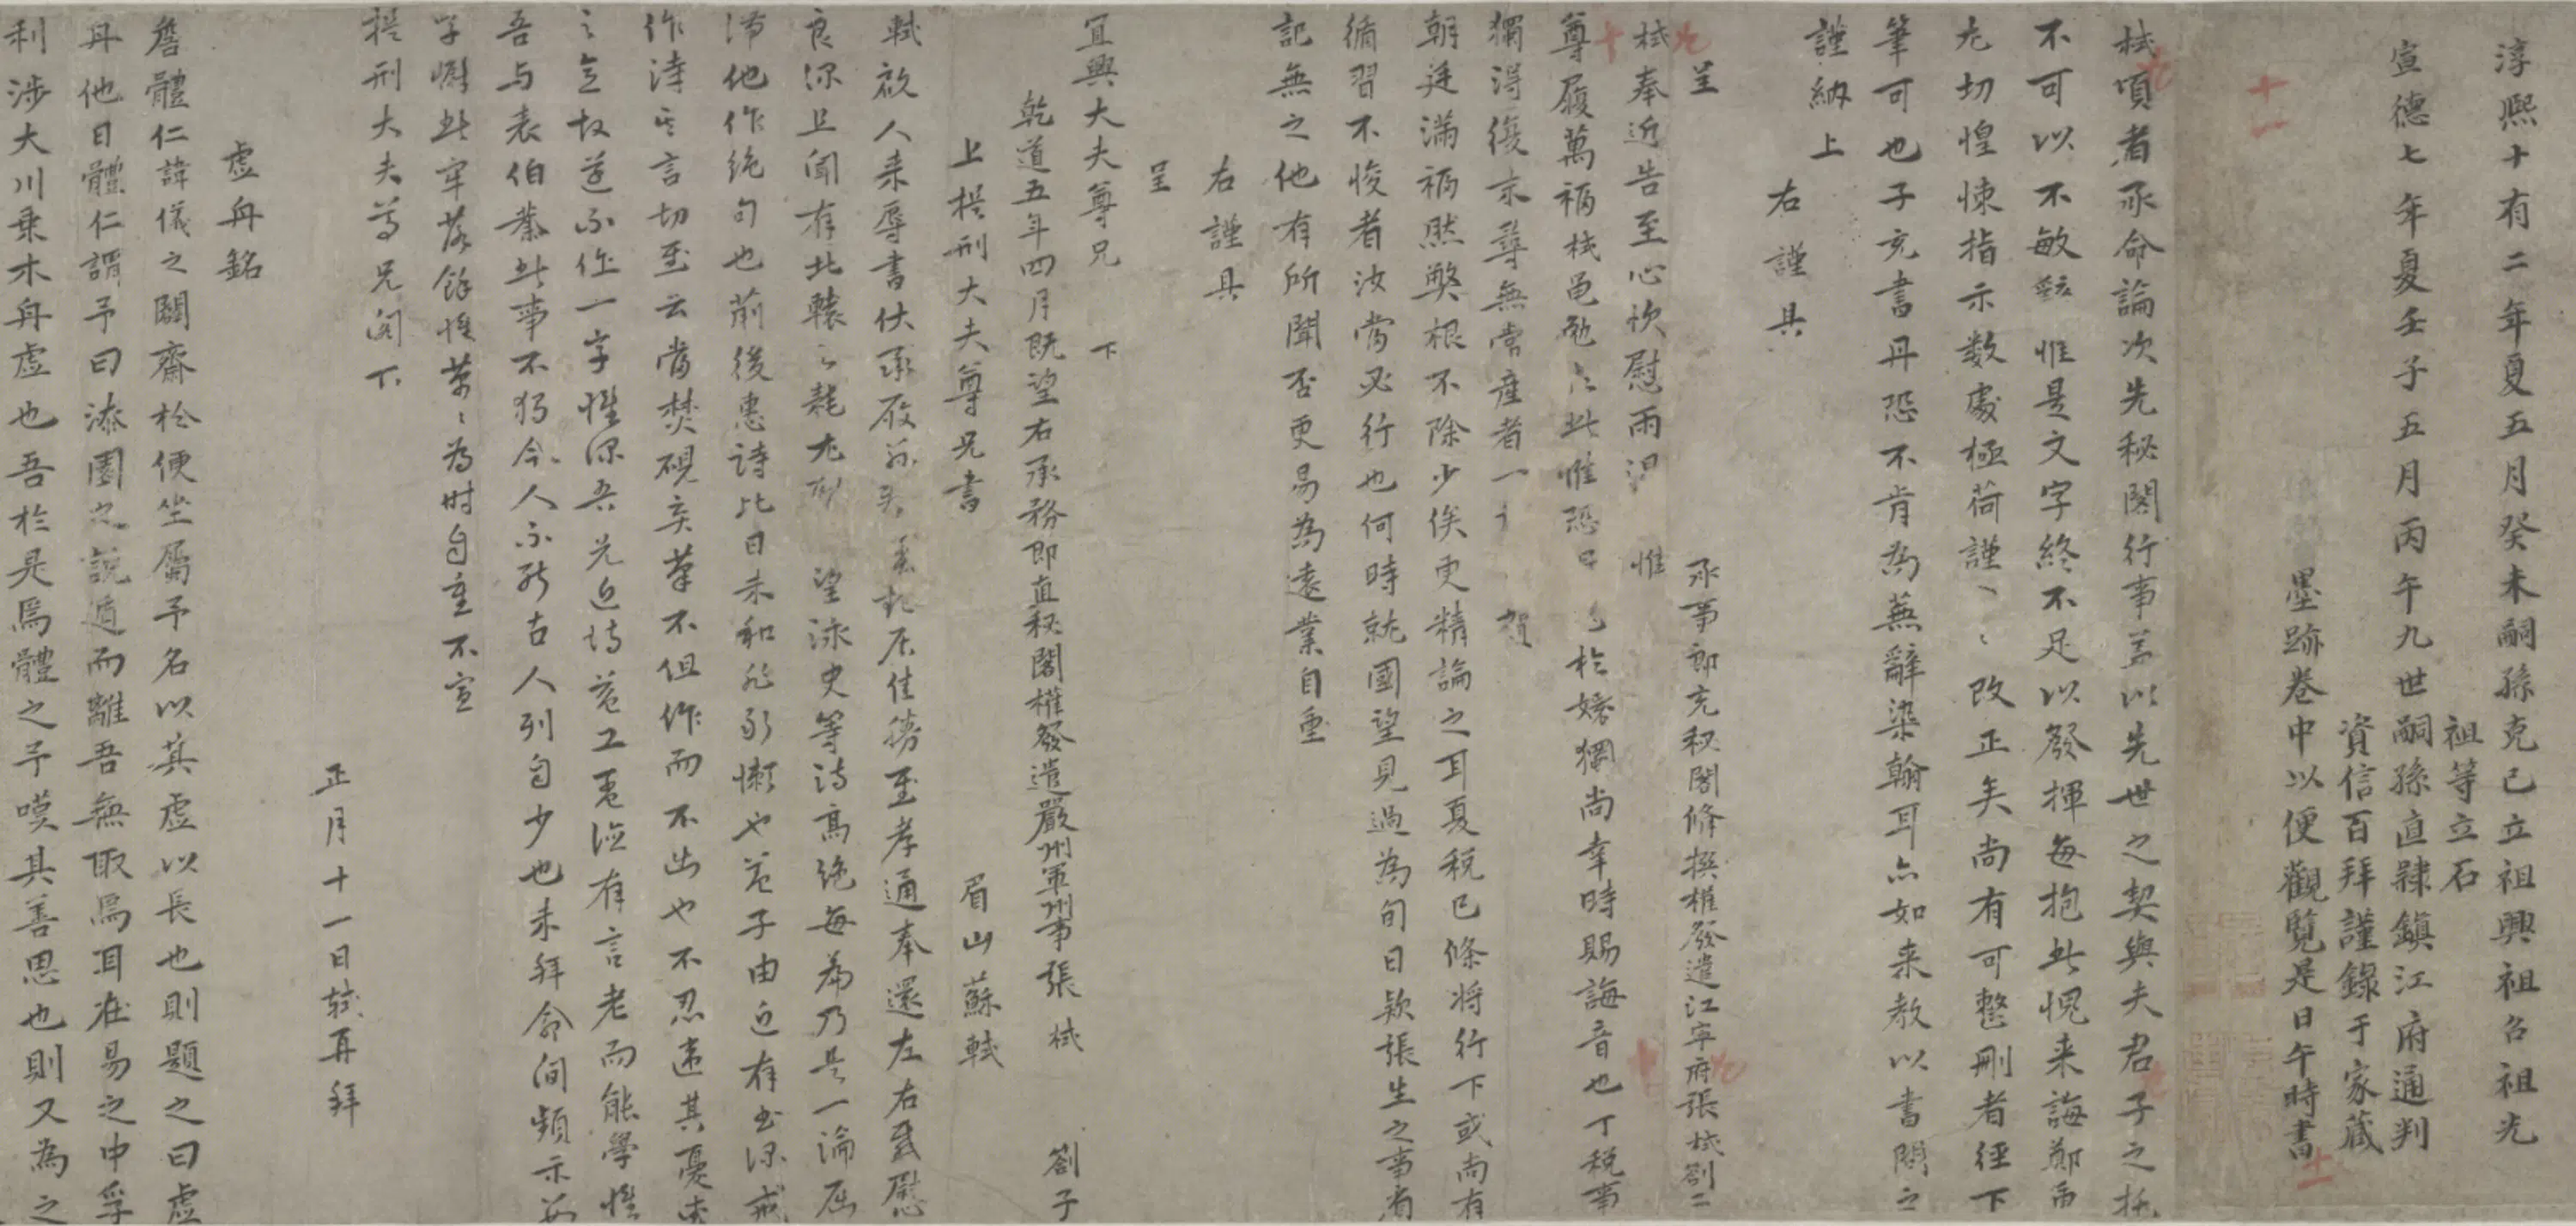 淳熙十有二年夏五月癸未嗣孫克己立祖興祖名祖光
祖等立石
宣德七年夏壬子五月丙午九世嗣孫直隸鎮江府通判
資信百拜謹錄于家藏
墨跡卷中以便觀覽是日午時書
十一
十一
栻頃者承命論次先秘閣行事蓋以先世之契與夫君子之托
不可以不敏辭惟是文字終不足以發揮每抱此愧来誨鄭
尤切惶悚指示数處極荷謹〻改正矣尚有可整刪者徑下
筆可也子充書丹恐不肯為蕪辭染翰耳亦如来教以書問之
謹納上
右謹具
呈
承事郎充秘閣修撰權發遣江寧府張栻劄子
栻奉近告至心次慰雨中惟
尊履萬福栻邑勉〻此惟恐於婘獨尚幸時賜誨音也丁稅事
獨得復求尋無常産者一賀
朝廷滿福然獘根不除少俟更精論之耳夏稅已條将行下或尚有
循習不悛者汝當必行也何時就國望見過為旬日欵張生之事有
記無之他有所聞否更易為遠業自重
右謹具
呈
宜興大夫尊兄下
乾道五年四月既望右承務郎直秘閣權發遣嚴州軍州事張栻劄子
上提刑大夫尊兄書
眉山蘇軾
軾啟人来辱書伏承居佳勝至孝通奉還左右甚慰
良深且聞有北轅之耗尤望詠史等詩高絶每篇乃是一論屈
滞他作絶句也前後惠詩比日未和非敢懶也蓋子由近有書深戒
作詩其言切至云當焚硯棄筆不但作而不出也不忍違其憂
之意故遂不作一字惟深吾兄近詩益工有言老而能學惟
吾与表伯業此事不獨今人不能古人列自少也未拜命間頻示
字慰此牢落餘惟萬〻為时自重不宣
提刑大夫尊兄閣下
正月十一日軾再拜
虚舟銘
詹體仁諱儀之闢齋於便坐屬予名以其虚以長也則題之曰虚
舟他日體仁謂予曰漆園之說遁而離吾無取焉耳在易之中孚
利涉大川乗木舟虚也吾於是焉體之予嘆其善思也則又為之